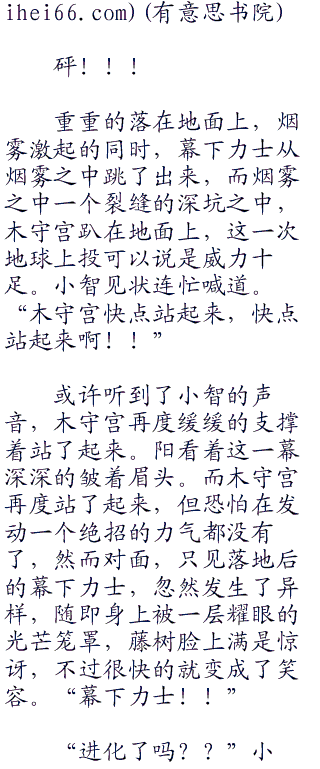 ihei66.com)(有意思书院)
砰！！！
重重的落在地面上，烟
雾激起的同时，幕下力士从
烟雾之中跳了出来，而烟雾
之中一个裂缝的深坑之中，
木守宫趴在地面上，这一次
地球上投可以说是威力十
足。小智见状连忙喊道。
“木守宫快点站起来，快点
站起来啊！！”
或许听到了小智的声
音，木守宫再度缓缓的支撑
着站了起来。阳看着这一幕
深深的皱着眉头。而木守宫
再度站了起来，但恐怕在发
动一个绝招的力气都没有
了，然而对面，只见落地后
的幕下力士，忽然发生了异
样，随即身上被一层耀眼的
光芒笼罩，藤树脸上满是惊
讶，不过很快的就变成了笑
容。“幕下力士！！”
“进化了吗？？”小